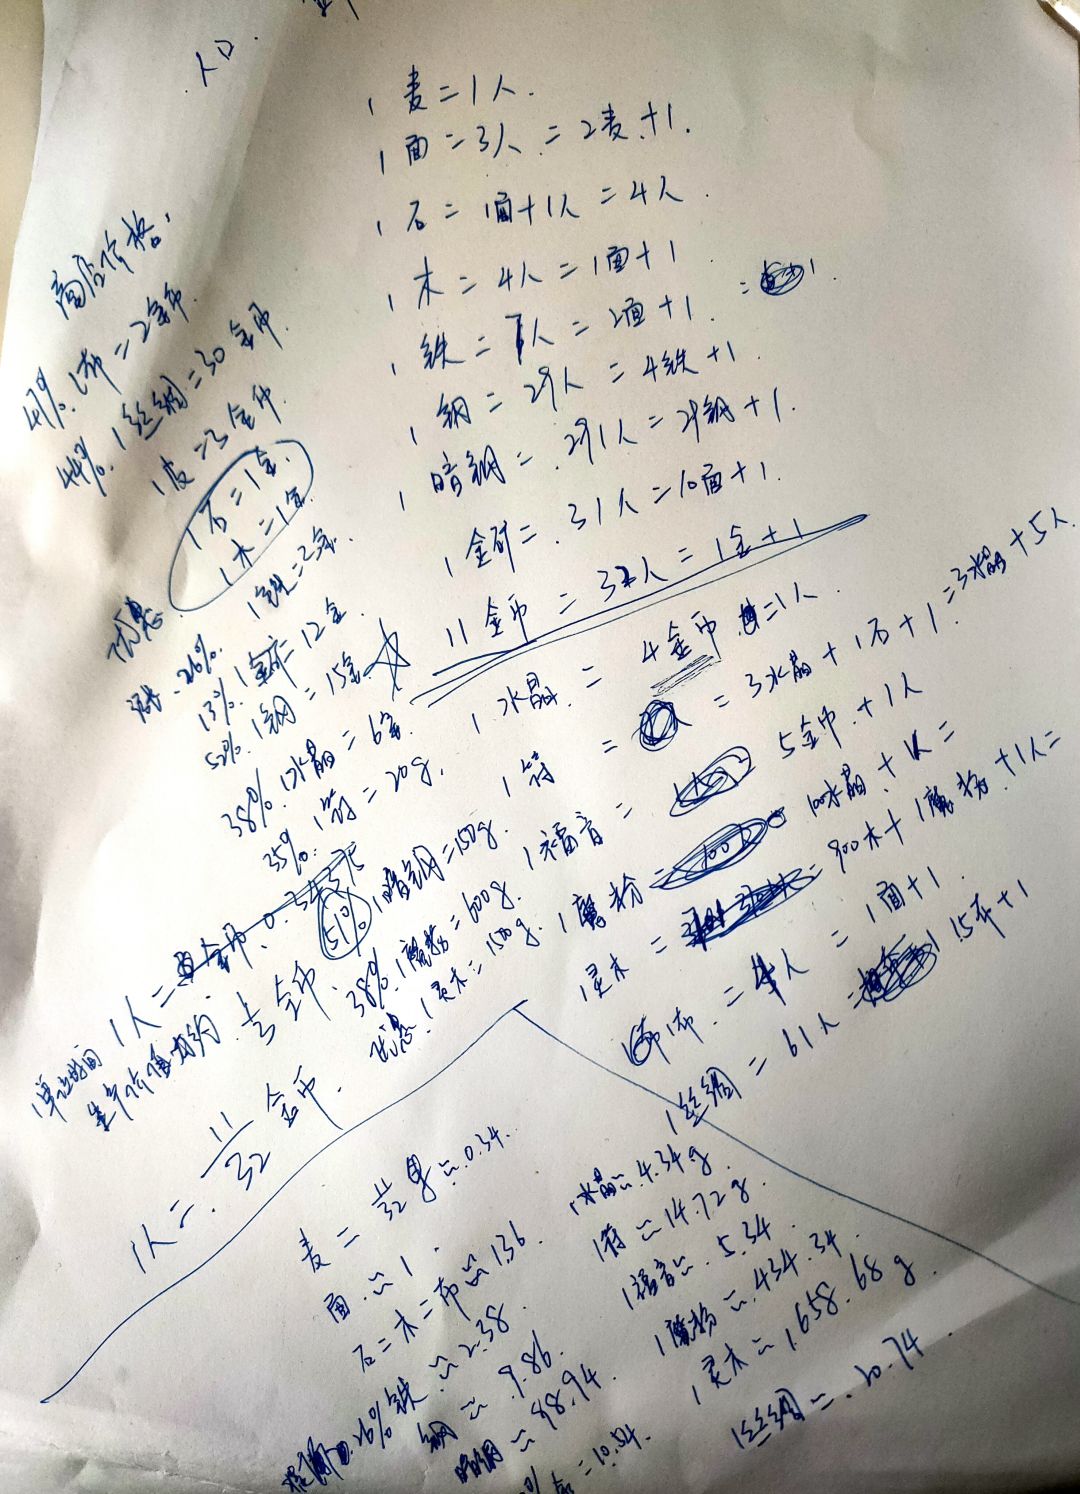 人口.
1麦=1人.
1面=3人=2麦+1.
1石=1面+1人=4人
1木=4人=1面+1
1铁=7人=2面+1.
1钢=29人=4铁+1.
1暗钢=291人=29钢+1.
1金矿=31人=10面+1.
11金币=32人=1金+1
1水晶=4金币=1人
1符=3水晶+1石+1=3水晶+5人
1福音=5金币+1人
1魔粉=100水晶+1人=
1灵木=900木+1魔粉+1人=
1布=4人=1面+1.
1丝绸=61人=15布+1
商店价格.
47%.1布=2金币
44%.1丝绸=30金币
1皮=3金币
1石=1金.
1木=1金
26%.1铁=3金.
13%.1金矿=12金.
52%.1钢=15金
38%.1水晶=6金.
35%.1符=20g.
51%1暗钢=150g.
38%.1魔粉=600g.
1灵木=1500g.
1人=
1单位时间
1人=11/32金币.
麦=11/32≈0.34.
面≈1.
石=木=布≈1.36.
26%铁≈2.38
钢≈9.86.
暗钢≈98.94.
金≈10.54.
1水晶≈4.34g
1符≈14.72g.
1福音≈5.34.
1魔粉≈434.34.
1灵木≈1,658.68g.
1丝绸≈20.74